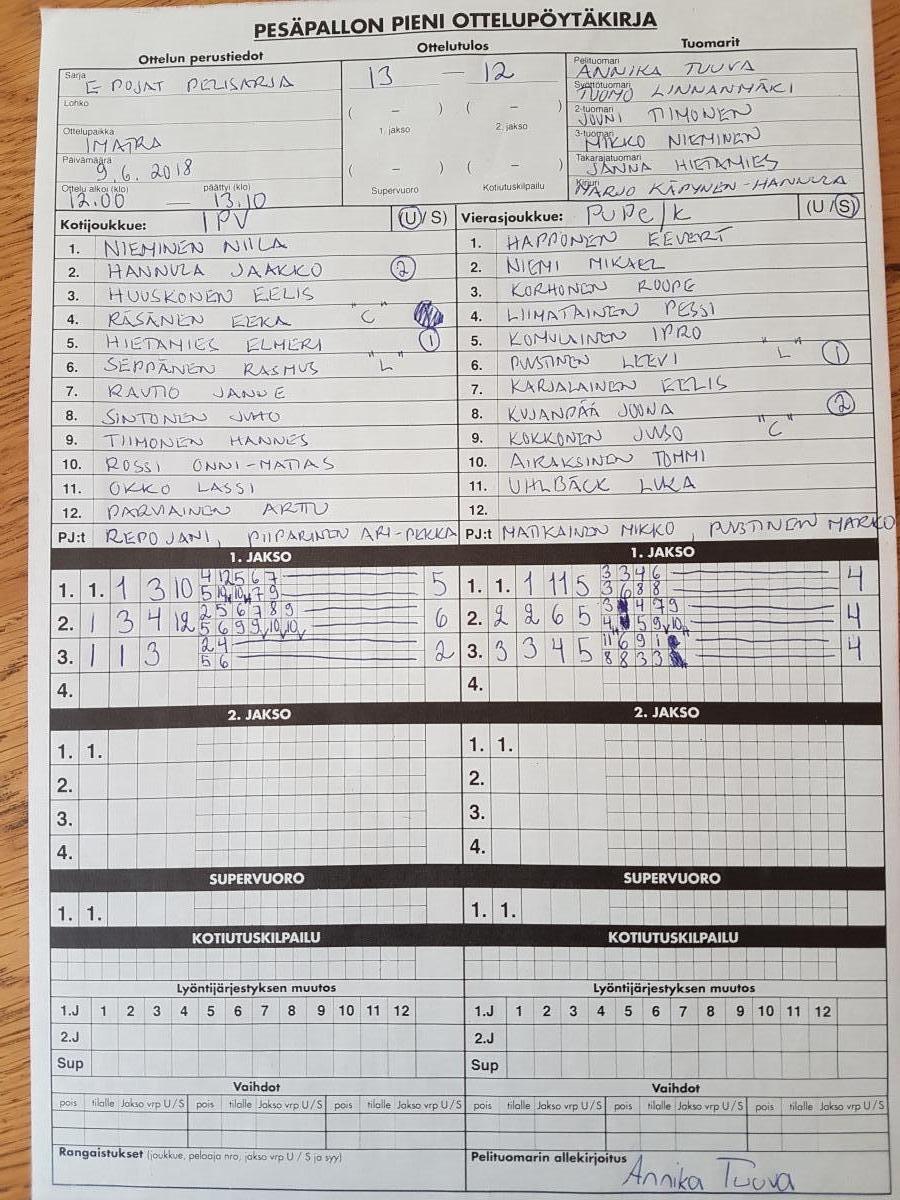 PESÄPALLON PIENI OTTELUPÖYTÄKIRJA
Ottelun perustiedot
Ottelutulos
Tuomarit
Sarja E POJAT PELISARJA
Lohko
Ottelupaikka IMATRA
Päivämäärä 9.6.2018
Ottelu alkoi (klo) päättyi (klo)
12.00 — 13.10
13 — 12
( – ) ( – )
1. jakso 2. jakso
( – ) ( – )
Supervuoro Kotiutuskilpailu
Pelituomari ANNIKA TUUVA
Syöttötuomari TUOMO LINNANMÄKI
2-tuomari JOUNI TIMONEN
3-tuomari MIKKO NIEMINEN
Takarajatuomari JANNA HIETAMIES
Kirjuri MARJO KÄPYNEN-HANNULA
Kotijoukkue: IPV (U/S)
1. NIEMINEN NIILA
2. HANNULA JAAKKO 2
3. HUUSKONEN EELIS
4. RÄSÄNEN EEKA "C"
5. HIETAMIES ELMERI 1
6. SEPPÄNEN RASMUS "L"
7. RAUTIO JANNE
8. SINTONEN JUHO
9. TIIMONEN HANNES
10. ROSSI ONNI-MATIAS
11. OKKO LASSI
12. PARVIAINEN ARTTU
PJ:t REPO JANI, PIIPARINEN ARI-PEKKA
Vierasjoukkue: PuPe/k (U/S)
1. HAPPONEN EEVERT
2. NIEMI MIKAEL
3. KORHONEN ROOPE
4. LIIMATAINEN PESSI
5. KOMULAINEN IPRO
6. PUUSTINEN LEEVI "L" 1
7. KARJALAINEN EELIS
8. KUJANPÄÄ JOONA 2
9. KOKKONEN JUUSO "C"
10. AIRAKSINEN TOMMI
11. UHLBÄCK LUKA
12.
PJ:t MATIKAINEN MIKKO, PUUSTINEN MARKO
1. JAKSO
1. 1. 1 3 10 4 12 5 6 7 5
5 10 10 7 9
2. 1 3 4 12 2 5 6 7 8 9 6
5 6 9 9 10 10
3. 1 1 3 2 4 2
5 6
4.
1. JAKSO
1. 1. 1 11 5 3 3 4 6 4
3 6 8 8
2. 2 2 6 5 3 4 7 9 4
4 5 9 10
3. 3 3 4 5 11 6 9 1 4
8 8 3 3
4.
2. JAKSO
1. 1.
2.
3.
4.
2. JAKSO
1. 1.
2.
3.
4.
SUPERVUORO
1. 1.
SUPERVUORO
1. 1.
KOTIUTUSKILPAILU
KOTIUTUSKILPAILU
Lyöntijärjestyksen muutos
1.J 1 2 3 4 5 6 7 8 9 10 11 12
2.J
Sup
Lyöntijärjestyksen muutos
1.J 1 2 3 4 5 6 7 8 9 10 11 12
2.J
Sup
Vaihdot
pois tilalle Jakso vrp U / S pois tilalle Jakso vrp U / S pois tilalle Jakso vrp U / S
Vaihdot
pois tilalle Jakso vrp U / S pois tilalle Jakso vrp U / S pois tilalle Jakso vrp U / S
Rangaistukset (joukkue, pelaaja nro, jakso vrp U / S ja syy)
Pelituomarin allekirjoitus Annika Tuuva